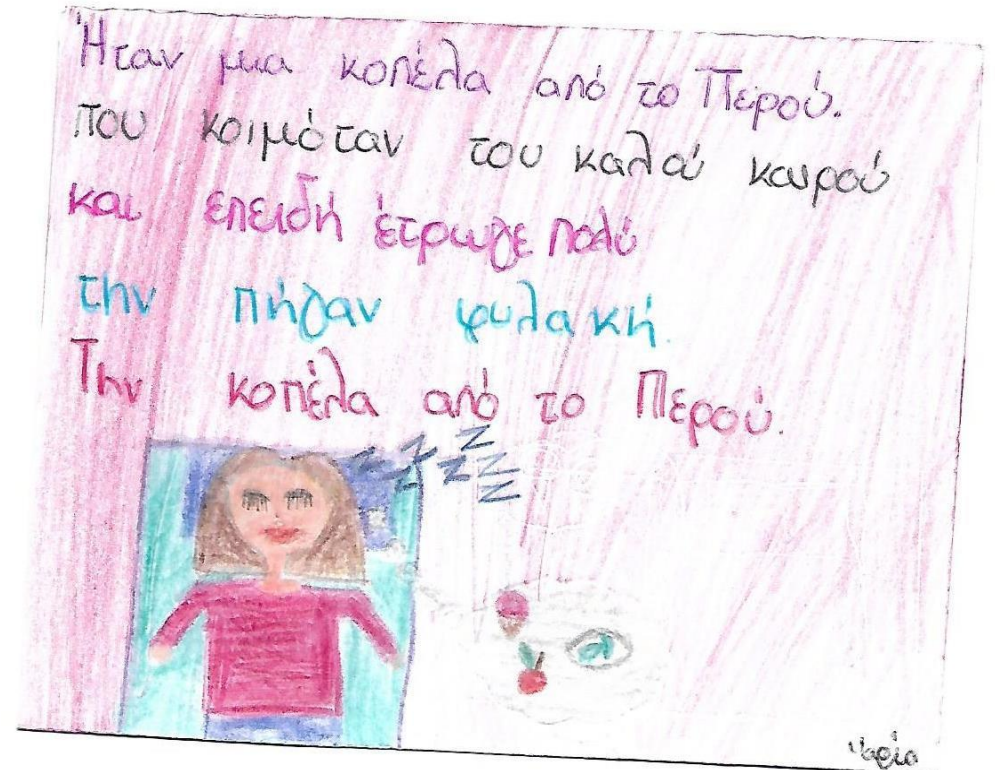 Ήταν μια κοπέλα από το Περού.
που κοιμόταν του καλού καιρού
και επειδή έτρωγε πολύ
την πήγαν φυλακή.
Την κοπέλα από το Περού.
z z z z z z z